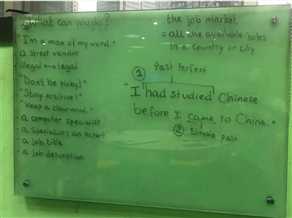 What can you do?
"I'm a man of my word."
a street vendor
illegal ↔ legal
"Don't be picky!"
"Stay positive!"
"Keep a clear mind."
a computer specialist
a specialist
a job title
a job description
the job market
= all the available jobs
in a country or city
① Past Perfect
"I had studied Chinese
before I came to China."
② Simple past